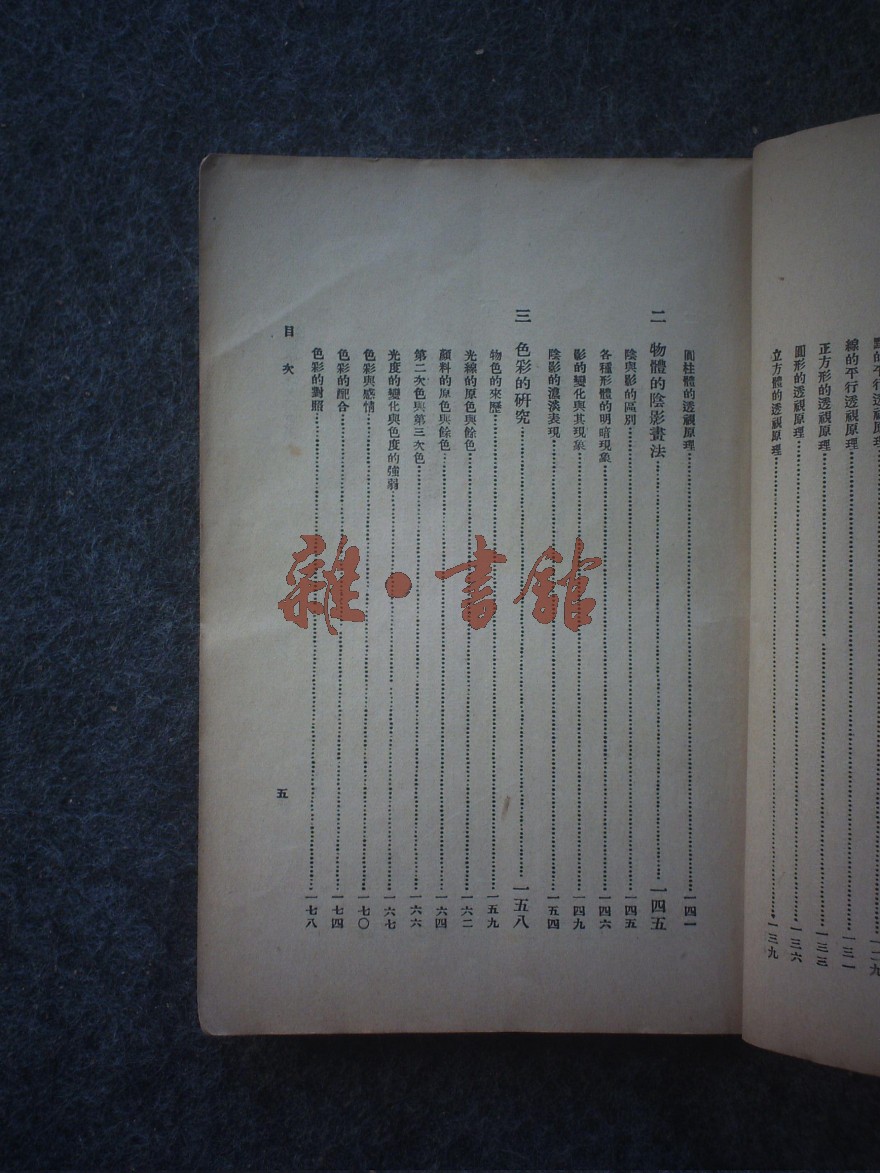 的平行透視原理……一二九
線的平行透視原理……一三一
正方形的透視原理……一三三
圓形的透視原理……一三六
立方體的透視原理……一三九
圓柱體的透視原理……一四一
二 物體的陰影畫法……一四五
陰與影的區別……一四五
各種形體的明暗現象……一四六
影的變化與其現象……一四九
陰影的濃淡表現……一五四
三 色彩的研究……一五八
物色的來歷……一五九
光線的原色與餘色……一六二
顏料的原色與餘色……一六四
第二次色與第三次色……一六六
光度的變化與色度的強弱……一六七
色彩與感情……一七〇
色彩的配合……一七四
色彩的對照……一七八
目次
五
雜·書館